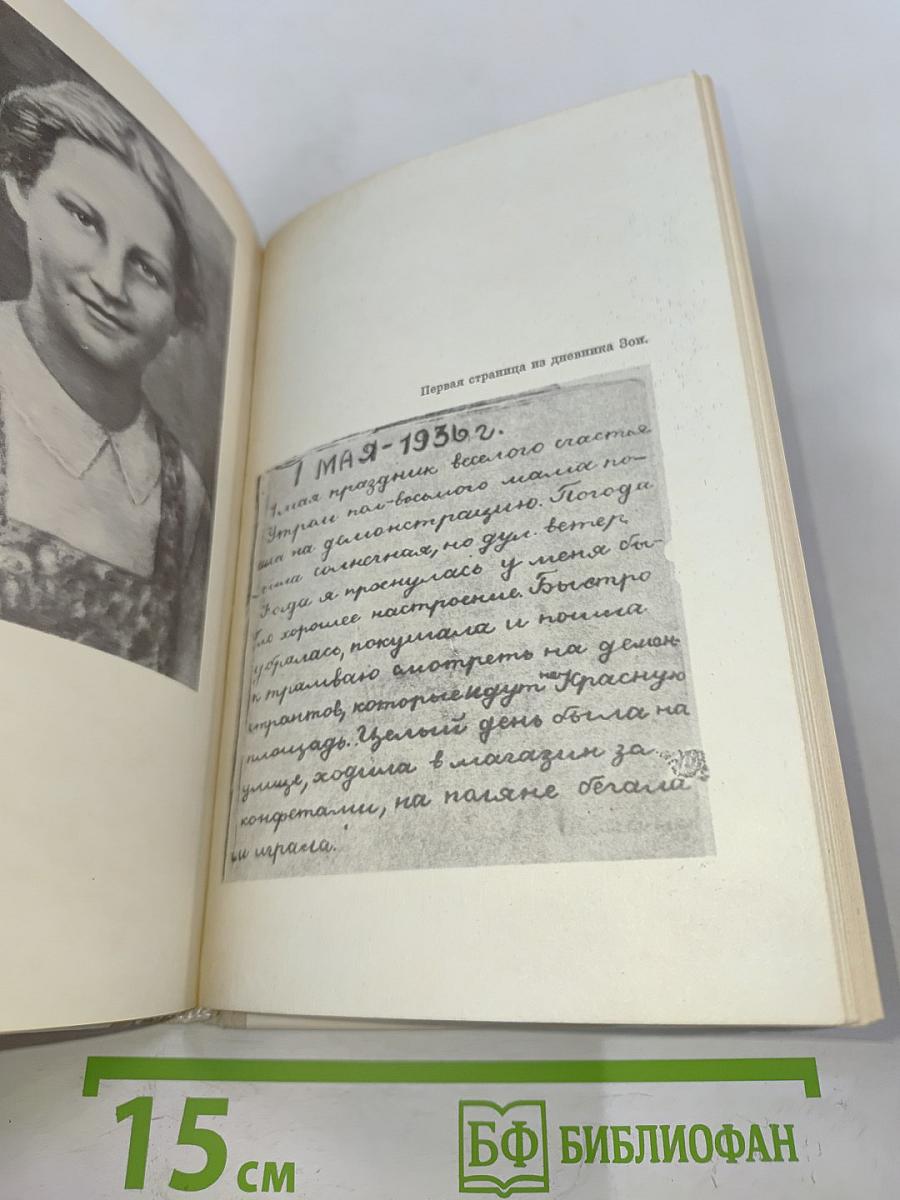 Первая страница из дневника Зои.
1 МАЯ-1936 г.
1 мая праздник веселого счастья
Утром пол-восьмого мама по-
шла на демонстрацию. Погода
была солнечная, но дул ветер.
Когда я проснулась у меня бы-
ло хорошее настроение. Быстро
убралась, покушала и пошла
к трамваю смотреть на демон-
странтов, которые идут на Красную
площадь. Целый день была на
улице, ходила в магазин за
конфетами, на поляне бегала
и играла.
15 см
БФ БИБЛИОФАН